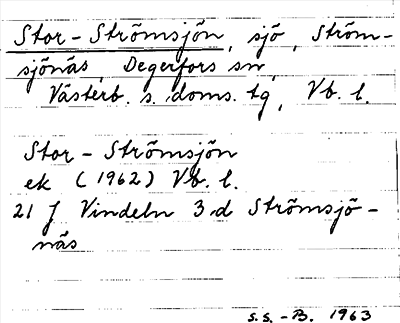 Stor-Strömsjön, sjö, Ström-
sjönäs, Degerfors sn,
Västerb. s. doms. tg, Vb. l.
Stor-Strömsjön
ek (1962) Vb. l.
21 J Vindeln 3 d Strömsjö-
näs
S.S.-B. 1963